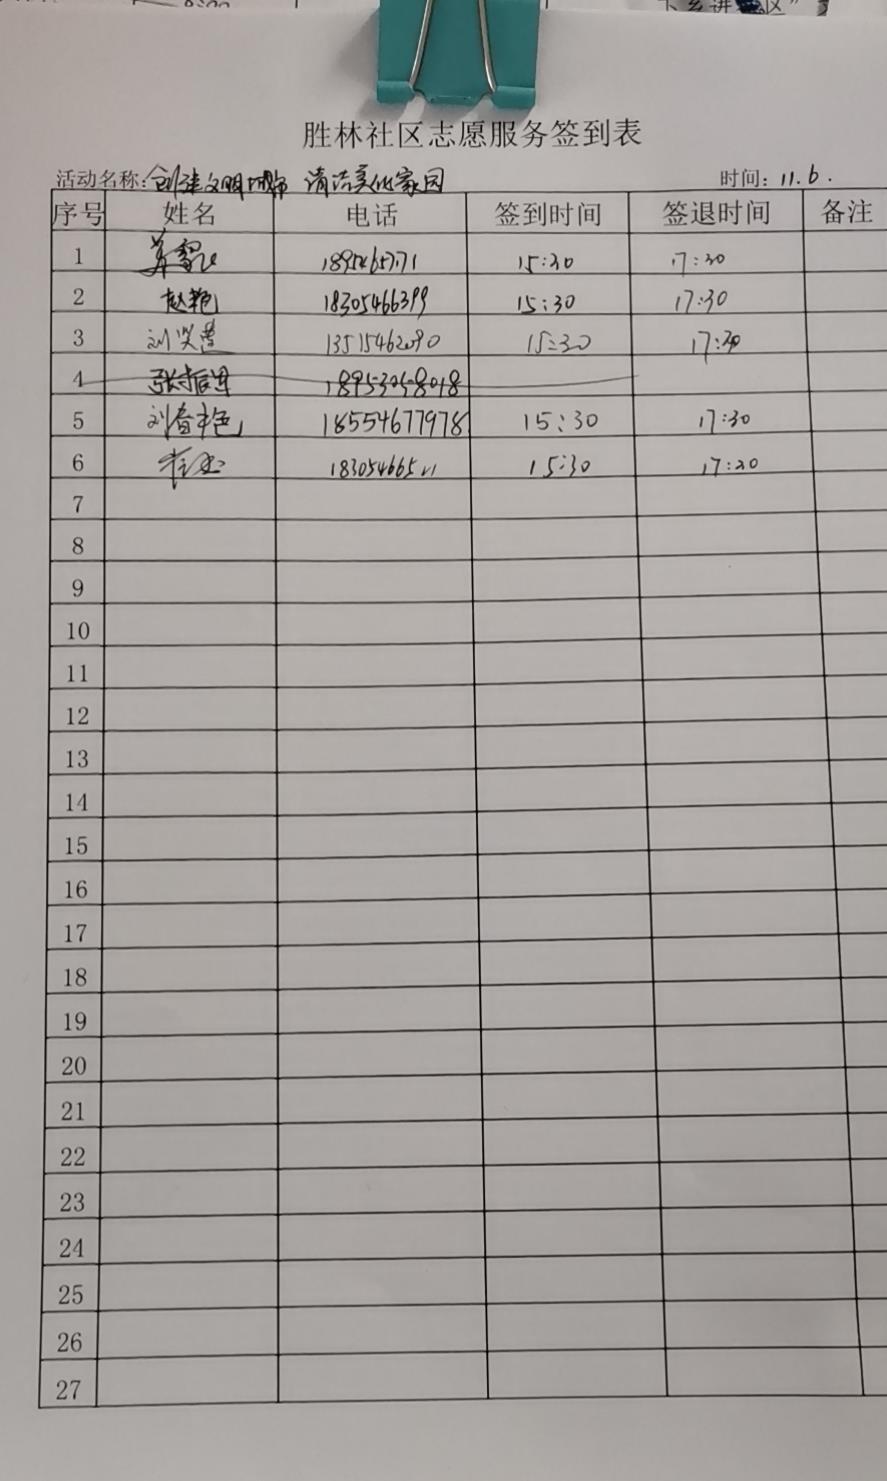 8:30
下乡进 区”
胜林社区志愿服务签到表
活动名称:创建文明城市 清洁美化家园 时间: 11.6.
序号 姓名 电话 签到时间 签退时间 备注
1 15:30 17:30
2 赵艳 18305466399 15:30 17:30
3 刘 13515462090 15:30 17:30
4 张 18953058018
5 刘春艳 18554677978 15:30 17:30
6 15:30 17:20
7
8
9
10
11
12
13
14
15
16
17
18
19
20
21
22
23
24
25
26
27